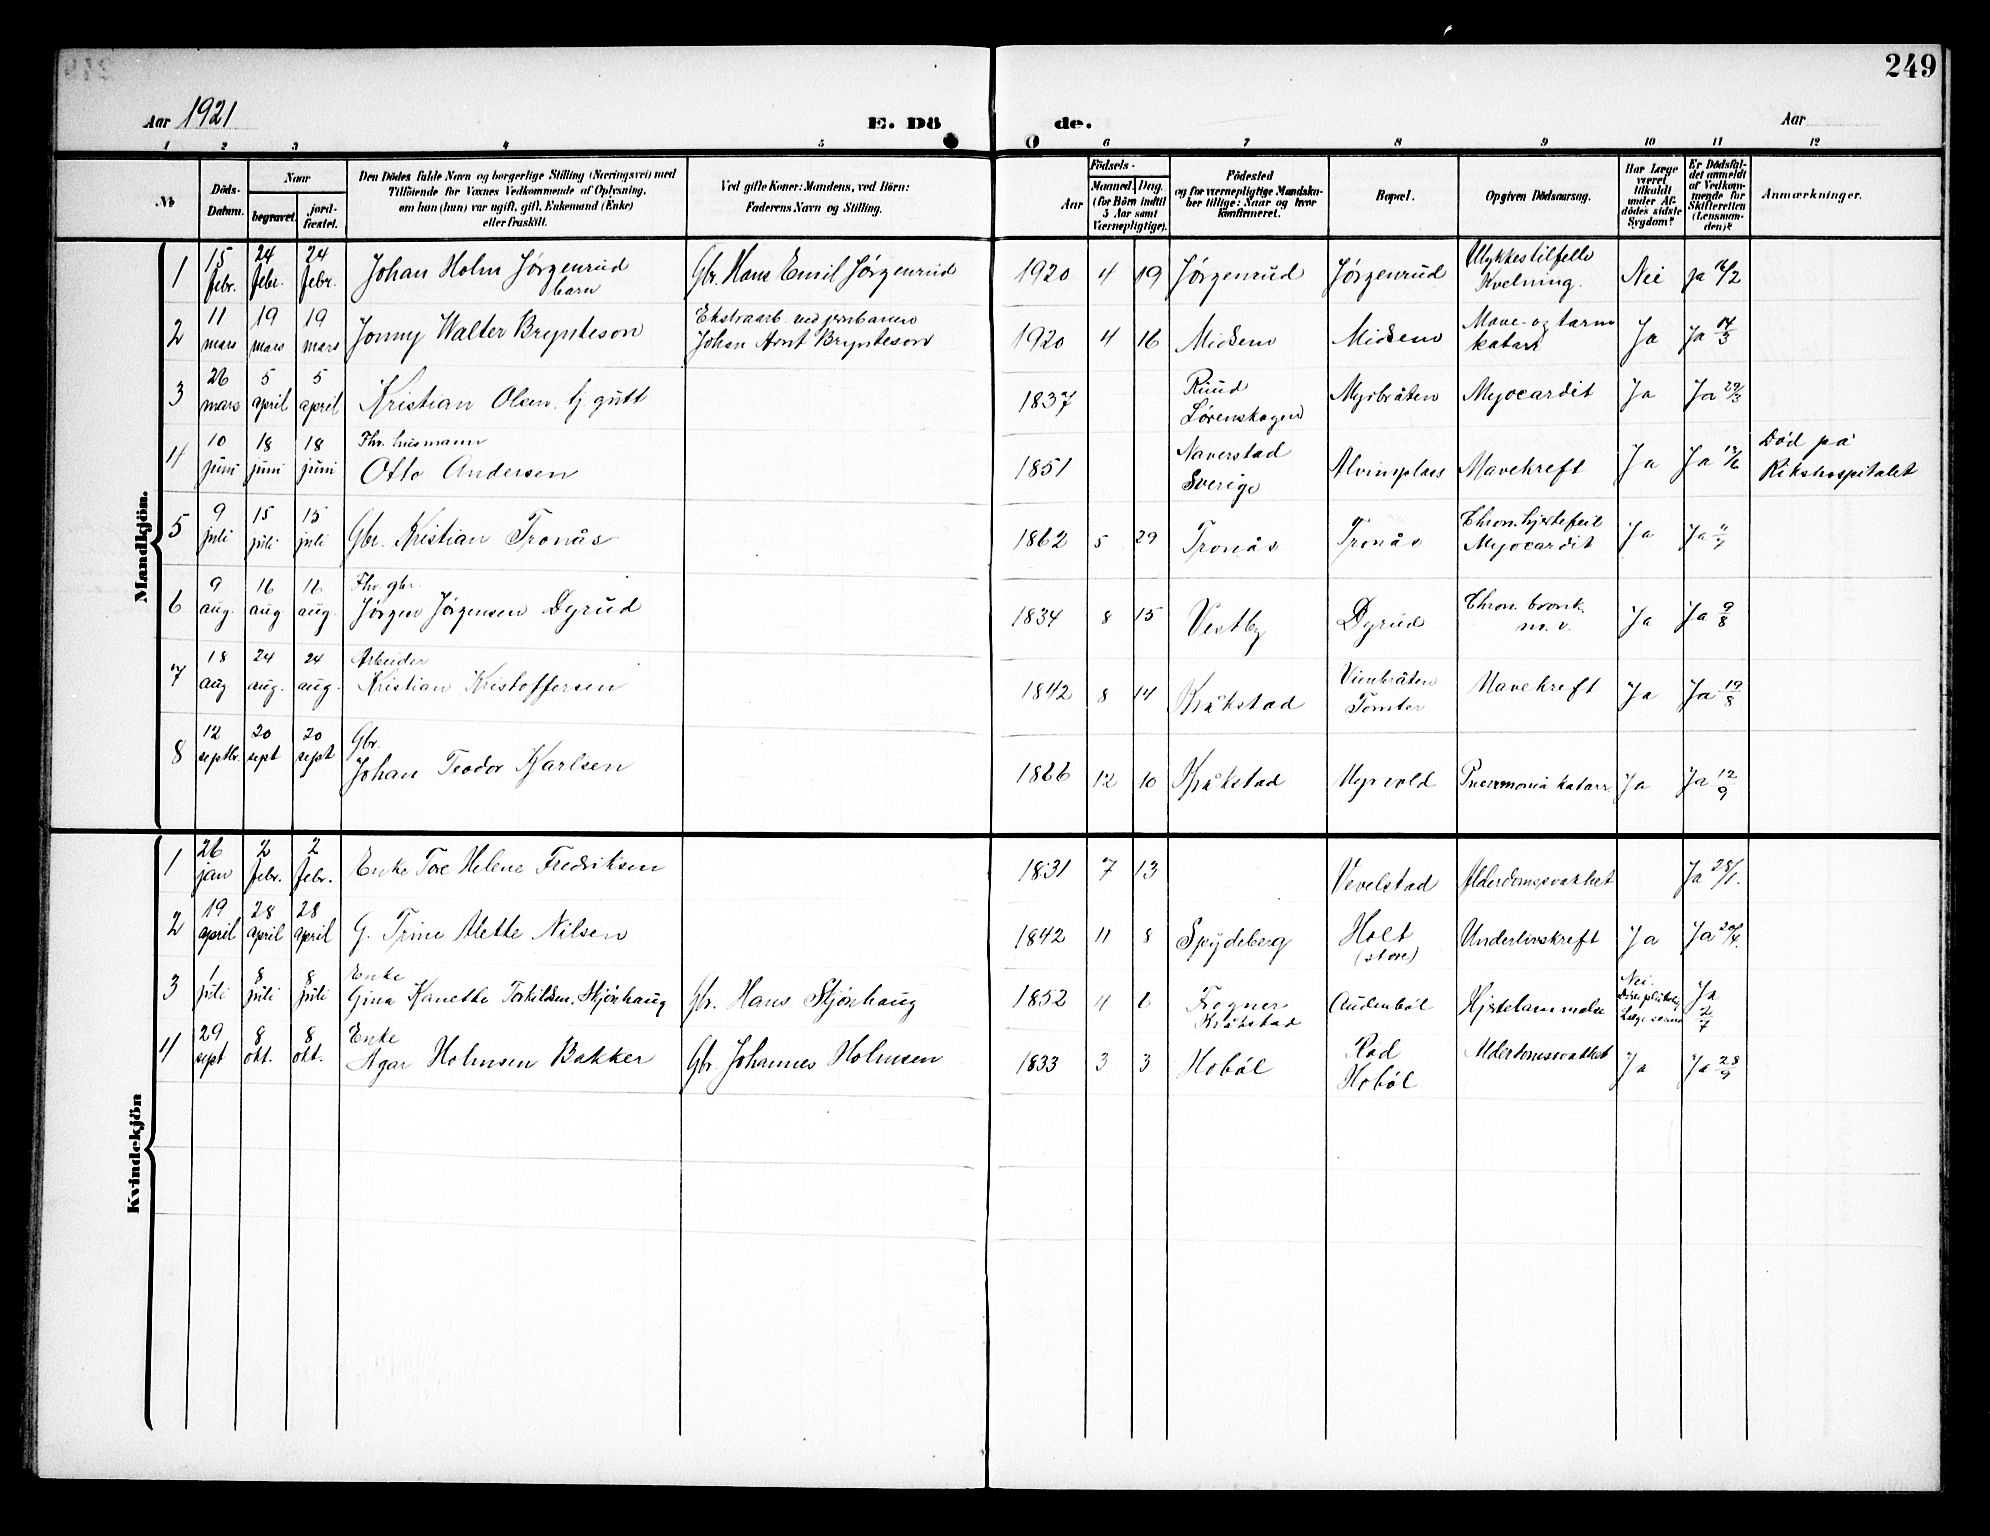 249
Aar 1921
E. Dö
de.
Aar
1 2 3 4 5 6 7 8 9 10 11 12
№
Döds-Datum.
Naar
begravet.
jord-fæstet.
Den Dödes fulde Navn og borgerlige Stilling (Næringsvei) med
Tilföiende for Voxnes Vedkommende af Oplysning,
om han (hun) var ugift, gift, Enkemand (Enke)
eller fraskilt.
Ved gifte Koner: Mandens, ved Börn:
Faderens Navn og Stilling.
Födsels-
Aar
Maaned. Dag.
(for Börn indtil
5 Aar samt
Værnepligtige).
Födested
og for værnepligtige Mandska-
ber tillige: Naar og hvor
konfirmeret.
Bopæl.
Opgiven Dödsaarsag.
Har Læge
været
tilkaldt
under Af-
dödes sidste
Sygdom?
Er Dödsfal-
det anmeldt
af Vedkom-
mende for
Skifteretten
(Lensman-
den)?
Anmærkninger.
Mandkjön.
1 15 febr. 24 febr. 24 febr. Johan Holm Jørgenrud barn Gbr. Hans Emil Jørgenrud 1920 4 19 Jørgenrud Jørgenrud Ulykkestilfelle Kvelning. Nei Ja 16/2
2 11 mars 19 mars 19 mars Jonny Walter Brynteson Ekstraarb. ved jernbanen Johan Arnt Brynteson 1920 4 16 Midsem Midsem Mave- og tarm katarr Ja Ja 14/3
3 26 mars 5 april 5 april Kristian Olsen tj. gutt 1837 Ruud Lørenskogen Myrbråten Myocardit Ja Ja 29/3
4 10 juni 18 juni 18 juni Fhv. husmann Otto Andersen 1851 Naverstad Sverige Alvimplass Mavekreft Ja Ja 13/6 Død på Rikshospitalet
5 9 juli 15 juli 15 juli Gbr. Kristian Tronås 1862 5 29 Tronås Tronås Chron. hjertefeil Myocardit Ja Ja 11/7
6 9 aug. 16 aug 16 aug. Fhv gbr. Jørgen Jørgensen Dyrud 1834 8 15 Vestby Dyrud Chron. bronk. m. v. Ja Ja 9/8
7 18 aug 24 aug. 24 aug. Arbeider Kristian Kristoffersen 1842 8 14 Kråkstad Vienbråten Tomter Mavekreft Ja Ja 19/8
8 12 septbr. 20 sept 20 sept Gbr. Johan Teodor Karlsen 1866 12 10 Kråkstad Myrvold Pneumonia katarr Ja Ja 12/9
Kvindekjön
1 26 jan 2 febr. 2 febr. Enke Tore Helene Fredriksen 1831 7 13 Vevelstad Alderdomssvakhet Ja 28/1.
2 19 april 28 april 28 april G. Trine Mette Nilsen 1842 11 8 Spydeberg Holt (store) Underlivskreft Ja Ja 20/4.
3 1 juli 8 juli 8 juli Enke Gina Kanette Torkildsen Skjønhaug Gbr. Hans Skjønhaug 1852 4 6 Frogner Kråkstad Audenbøl Hjertelammelse Nei. Ja 2/7
4 29 sept 8 okt. 8 okt. Enke Agar Holmsen Bakker Gbr. Johannes Holmsen 1833 3 3 Hobøl Rod Hobøl Alderdomssvakhet Ja Ja 28/9